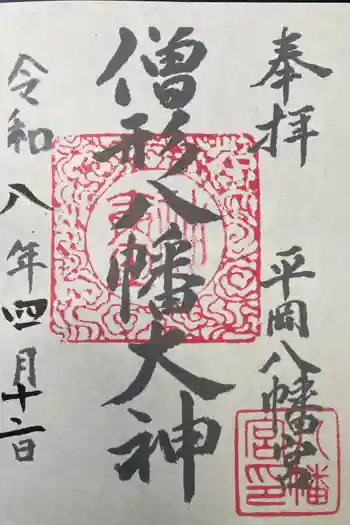 奉拝
平岡八幡宮
僧形八幡大神
令和八年四月十二日